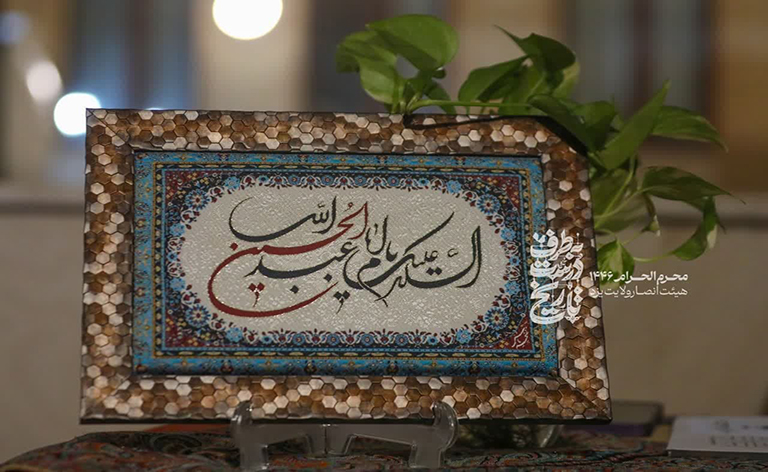 السلام علیک یا ابا عبد الله الحسین
در طرف درست تاریخ
محرم الحرام ۱۴۴۶
هیئت انصار ولایت یزد